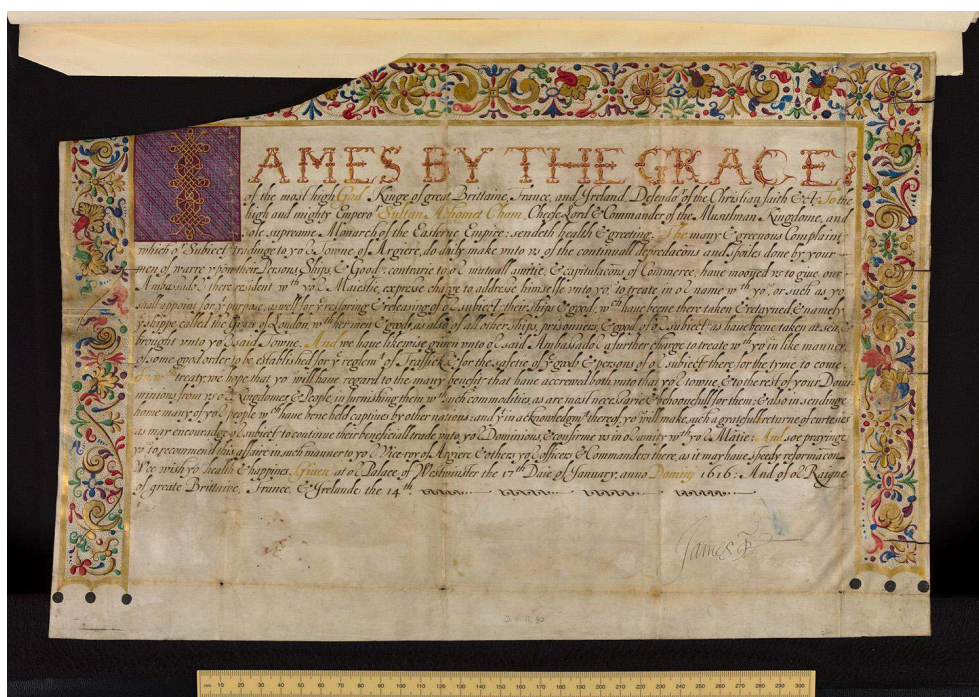 IAMES BY THE GRACE
of the most high God Kinge of great Brittaine, France, and Yreland, Defendoʳ of the Christian faith &c. To the
high and mighty Emperoʳ Sultan Achomet Cham, Cheefe Lord & Commander of the Musulman Kingdome, and
sole supreame Monarch of the Easterne Empire; sendeth health & greeting. The many & greeuous Complaints
which oʳ Subiects tradinge to yoʳ Towne of Argiere, do daily make vnto vs of the continuall depredacons and spoiles done by your
men of warre vpon their Persons Ships & Goods, contrarie to oʳ mutuall amitie, & capitulacons of Commerce, haue mooued vs to giue our
Ambassadoʳ there resident wᵗʰ yoʳ Maiestie, expresse charge to addresse himselfe vnto yoᵘ, to treate in oʳ name wᵗʰ yoᵘ, or such as yoᵘ
shall appoint for yᵉ purpose, aswell for yᵉ restoring & releasing of oʳ subiects, their ships & goods, wᶜʰ haue beene there taken & retayned, & namely
yᵉ shippe called the Grace of London, wᵗʰ her men & goods, as also of all other ships, prisoners, & goods of oʳ subiects as haue beene taken at sea, &
brought vnto yoʳ said Towne. And we haue likewise giuen vnto oʳ said Ambassadoʳ a further charge to treate wᵗʰ yoᵘ in like manner
of some good order to be established for yᵉ reglemᵗ of Traffick & for the safetie of yᵉ goods & persons of oʳ subiects there for the tyme to come
treaty, we hope that yoᵘ will haue regard to the many benefits that haue accrewed both vnto that yoʳ towne, & to the rest of yours Domi-
nions from oʳ Kingdomes & People, in furnishing them wᵗʰ such commodities, as are most necessarie & behoouefull for them; & also in sendinge
home many of yoʳ people wᶜʰ haue bene held captiues by other nations: and yᵗ in acknowledgmᵗ thereof, yoᵘ will make such a gratefull returne of curtesies
as may encouradge oʳ subiects to continue their beneficiall trade vnto yoʳ Dominions, & confirme vs in oʳ amity wᵗʰ yoʳ Maᵗⁱᵉ: And soe prayinge
yoᵘ to recommend this affaire in such manner to yoʳ Vice-roy of Argiere & others yoʳ officers & Commanders there, as it may haue speedy reformacon
Wee wish yoᵘ health & happines. Giuen at oʳ Palace of Westminster the 17ᵗʰ Daie of January, anno Dominy 1616: And of oʳ Raigne
of greate Brittaine, France, & Yrelande the 14ᵗʰ
James R
10 20 30 40 50 60 70 80 90 100 110 120 130 140 150 160 170 180 190 200 210 220 230 240 250 260 270 280 290 300